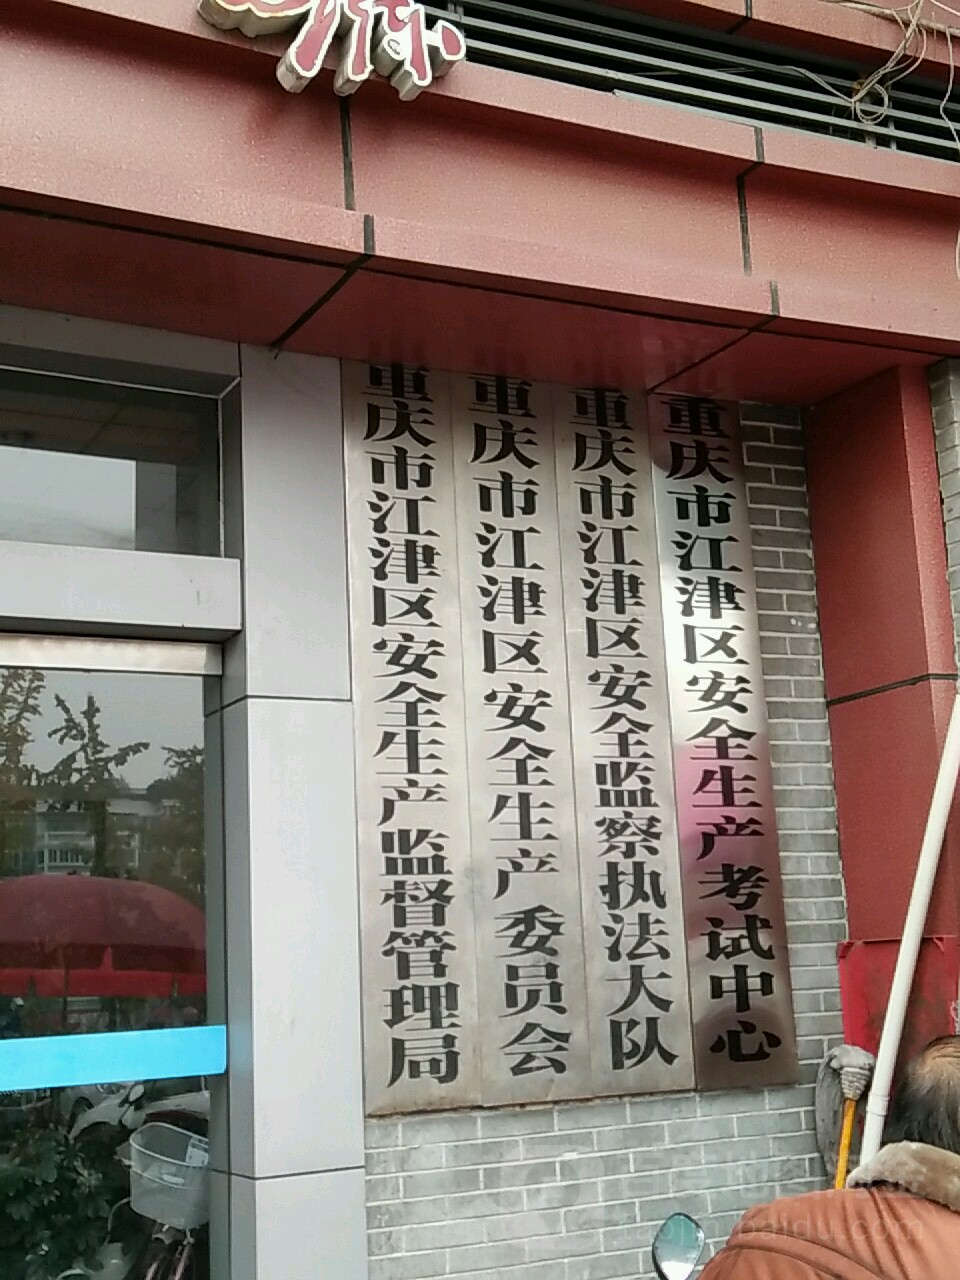 重庆市江津区安全生产监督管理局
重庆市江津区安全生产委员会
重庆市江津区安全监察执法大队
重庆市江津区安全生产考试中心